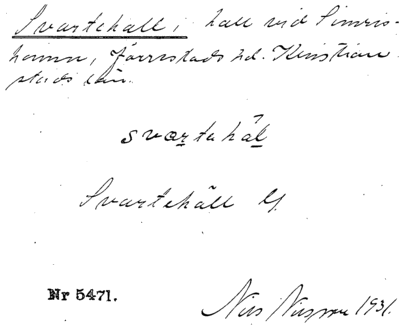 Svartehall, hall vid Simris-
hamn, Järrestads hd. Kristian-
stads län.
svartahäl
Svartehäll G
Nr 5471.
Nils Nilsson 1931.